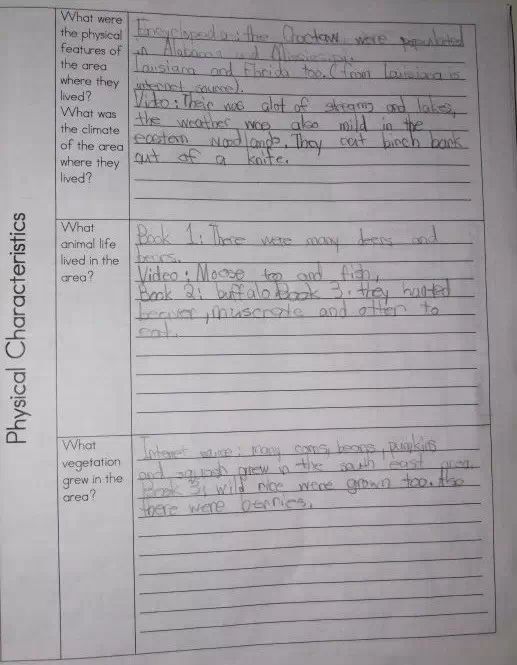 Physical Characteristics
What were
the physical
features of
the area
where they
lived?
What was
the climate
of the area
where they
lived?
Encyclopedia: the Choctaw were populated
in Alabama and Mississippi.
Lauisiana and Florida too. (from Lauisiana is
internet source).
Video: Their was alot of streams and lakes,
the weather was also mild in the
eastern woodlands. They cut birch bark
out of a knife.
What
animal life
lived in the
area?
Book 1: There were many deers and
bears.
Video: Moose too and fish,
Book 2: buffalo Book 3: they hunted
beaver, muscrats and otter to
eat.
What
vegetation
grew in the
area?
Internet : many corns, beans, pumpkins
and squash grew in the south east area.
Book 3: wild rice were grown too. Also
there were berries.